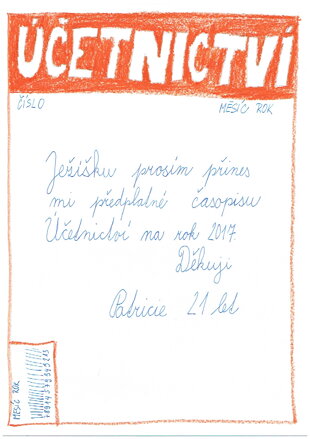 ÚČETNICTVÍ
ČÍSLO
MĚSÍC ROK
Ježíšku prosím přines
mi předplatné časopisu
Účetnictví na rok 2017.
Děkuji
Patricie 21 let
MĚSÍC ROK